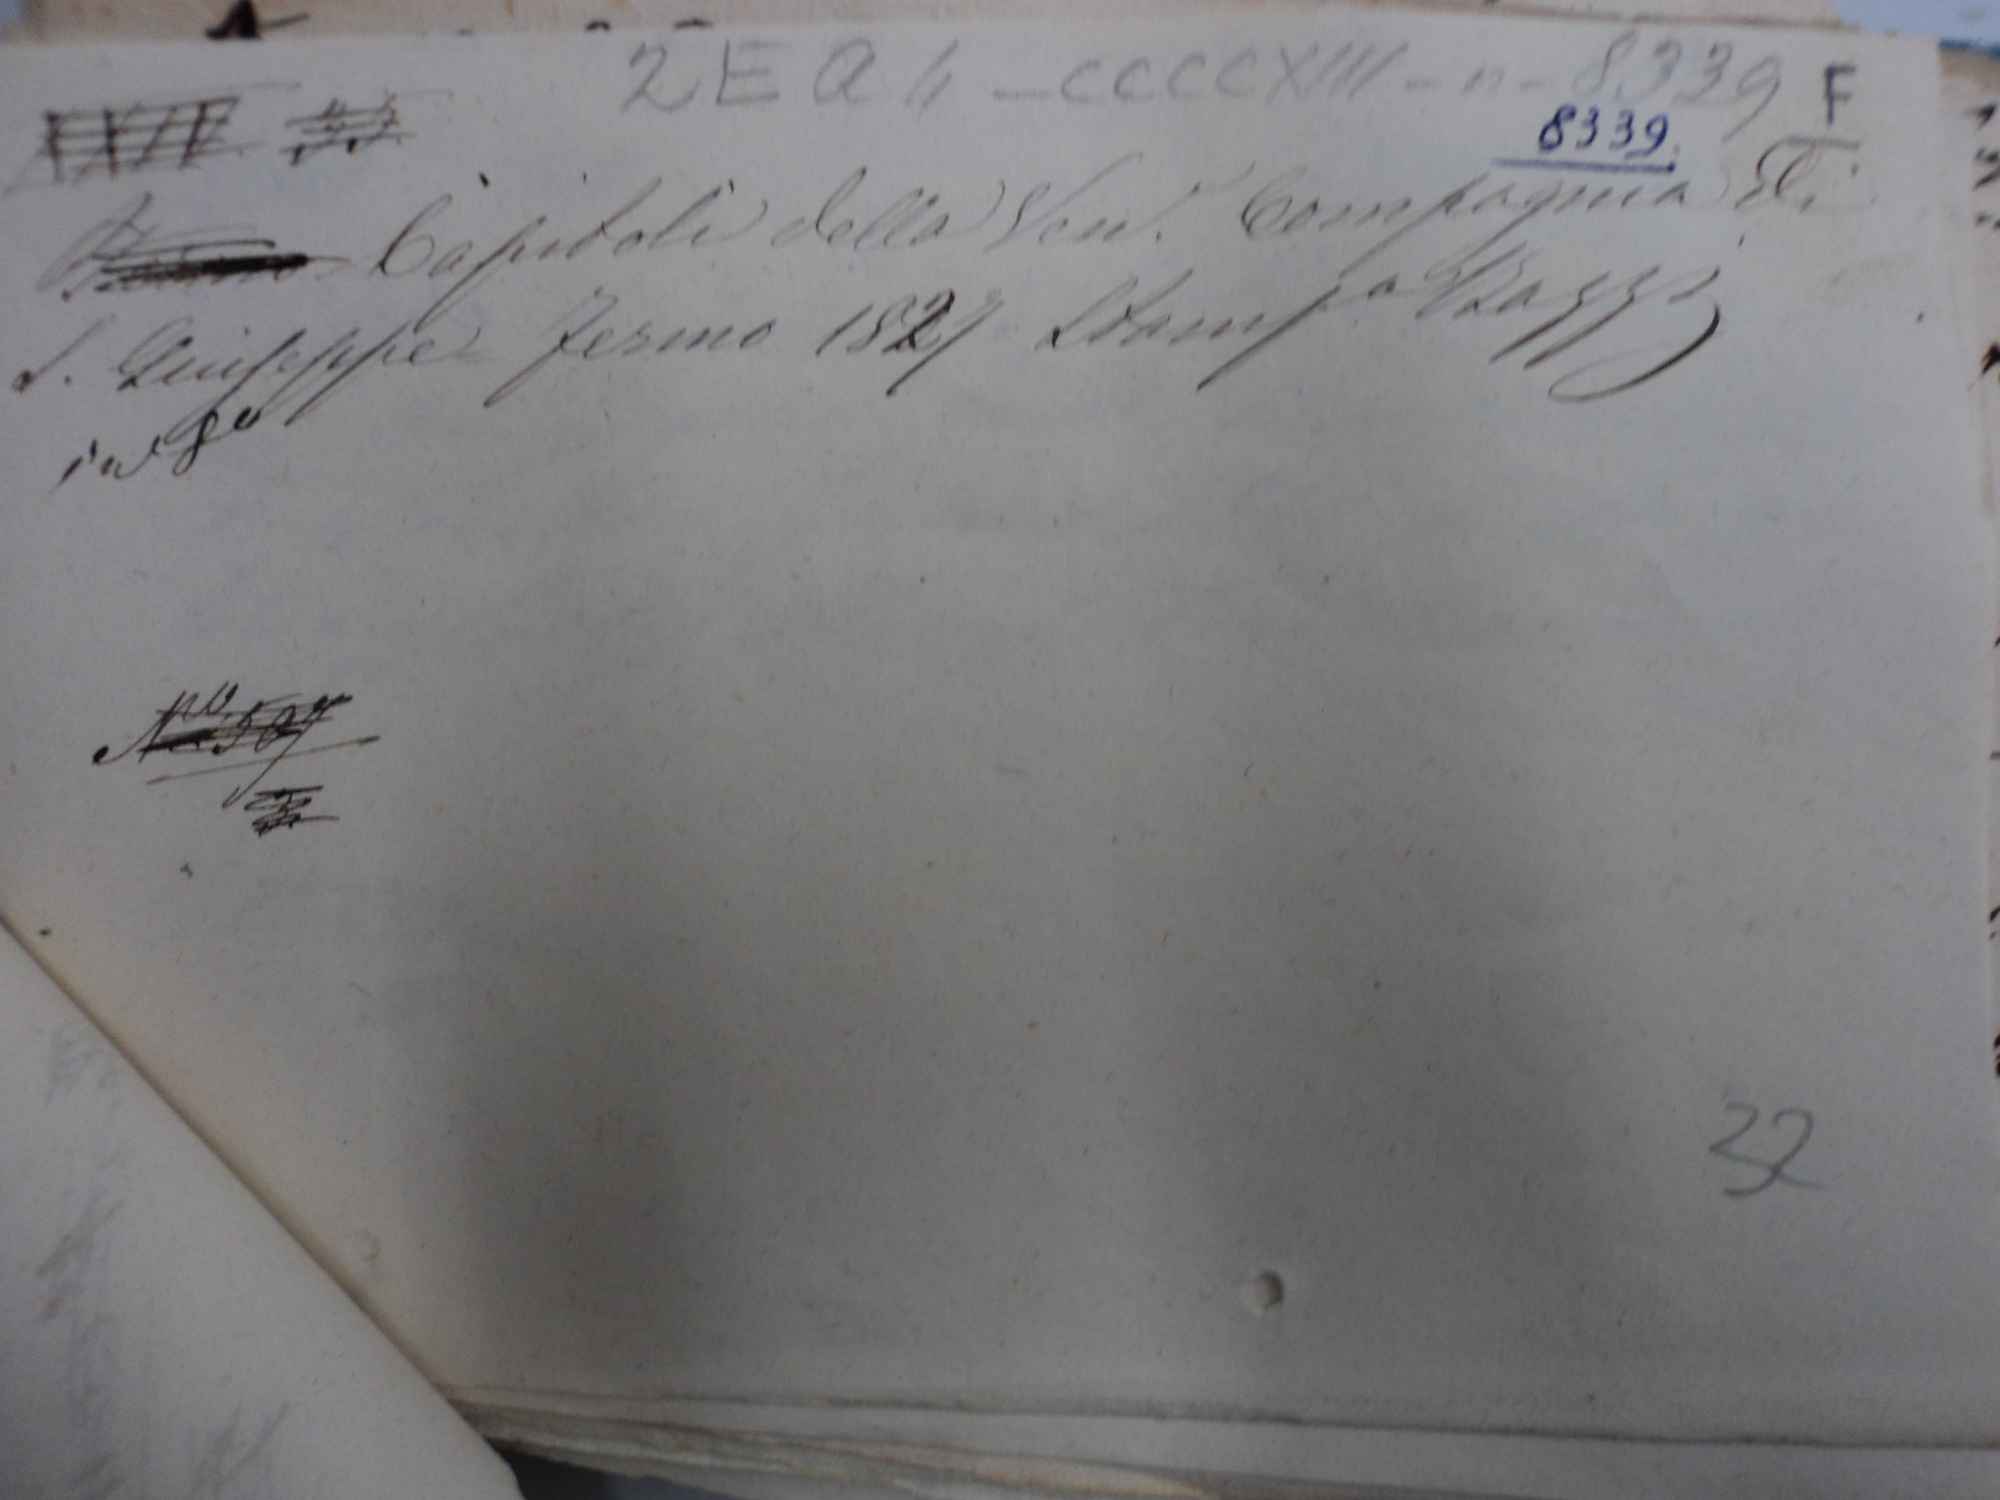 2 E Q 4 – CCCCXIII – n – 8339 F
8339.
Capitoli della Ven. Compagnia Di
S. Giuseppe Fermo 1827 Stamp.a Bazzi
in 8º
Nº 507
32